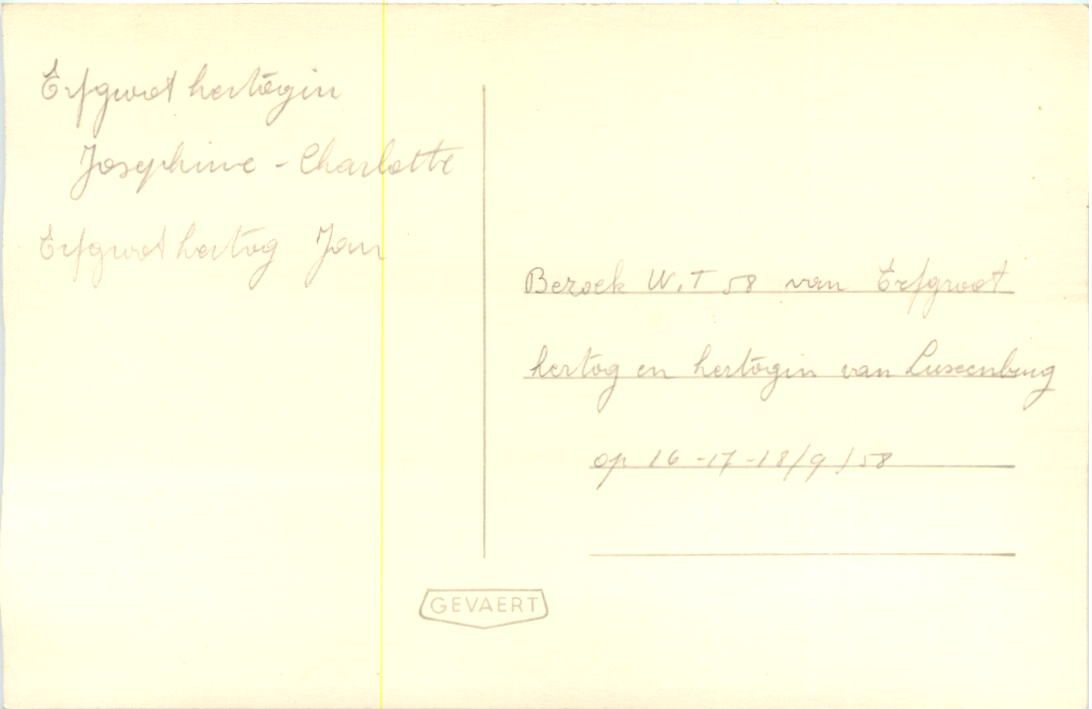 Erfgroot hertogin
Josephine - Charlotte
Erfgroot hertog Jan
Bezoek W.T 58 van Erfgroot
hertog en hertogin van Luxemburg
op 16 -17 -18/9/58
GEVAERT